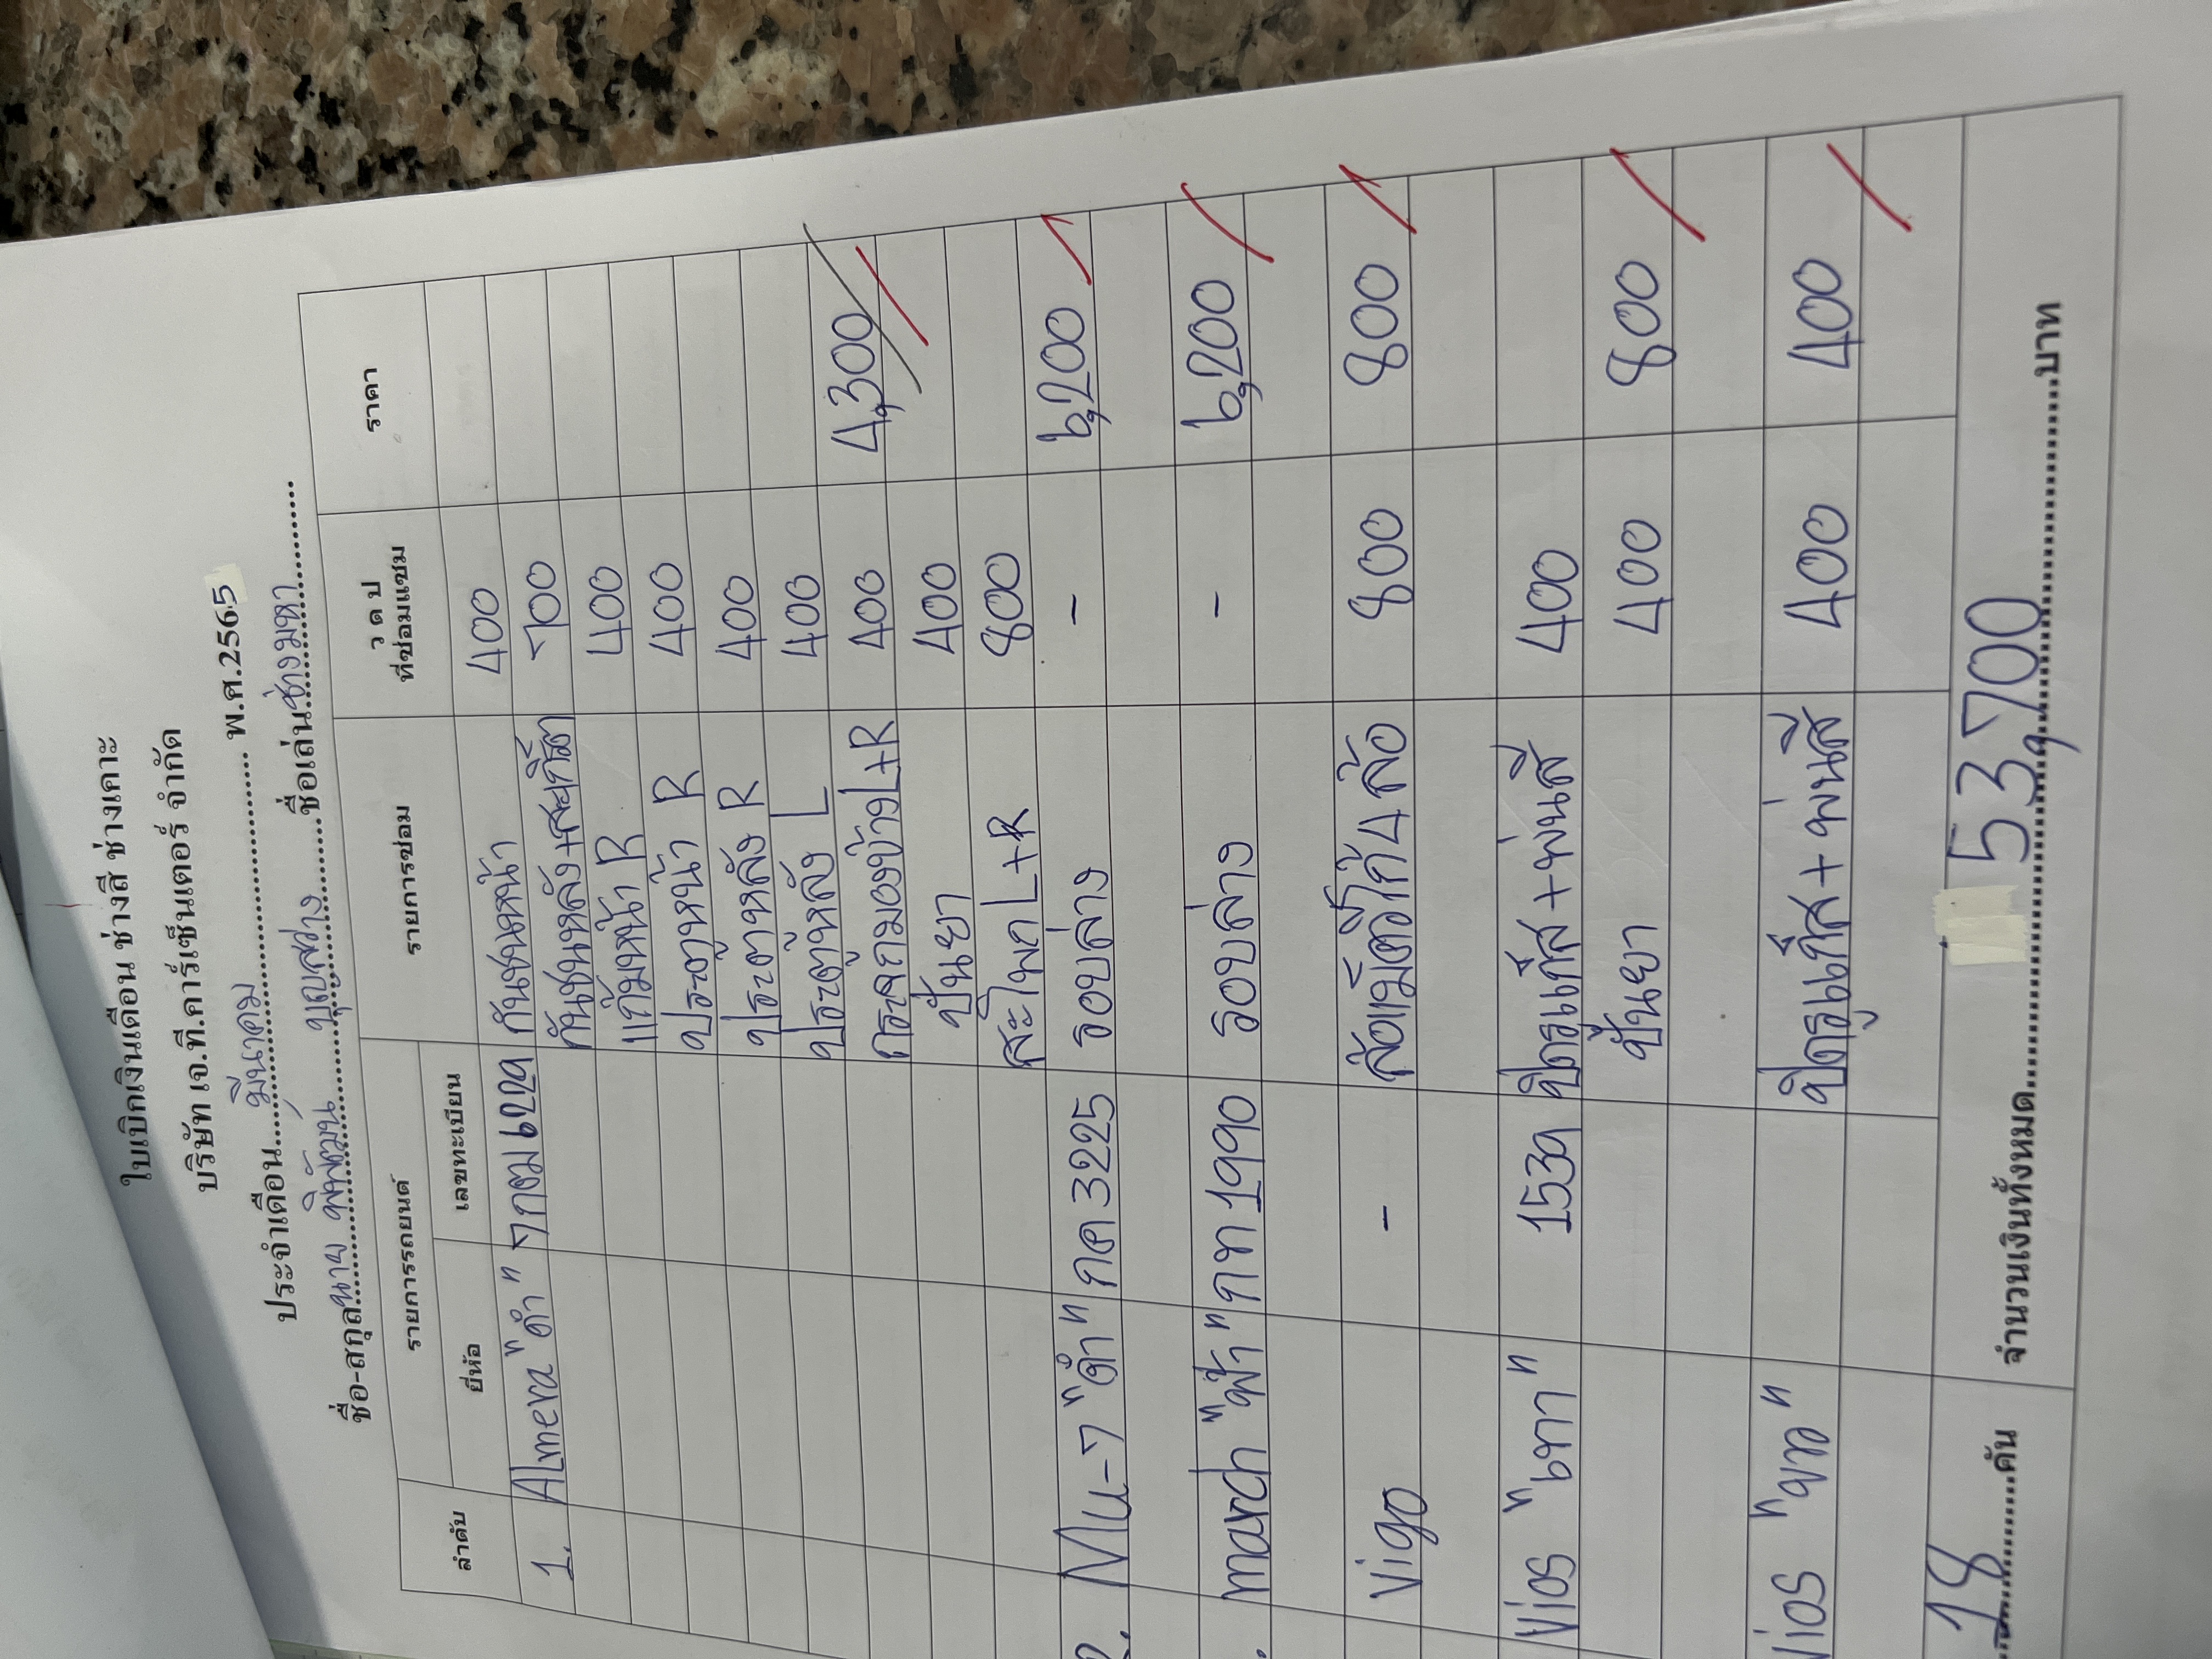 ใบเบิกเงินเดือน ช่างสี ช่างเคาะ
บริษัท เจ.ที.คาร์เซ็นเตอร์ จำกัด
ประจำเดือน......มีนาคม...................... พ.ศ.2565
ชื่อ-สกุล นาย พิพัฒน์ บุญสว่าง ชื่อเล่น ช่างมหา
ลำดับ รายการรถยนต์ รายการซ่อม ว ด ป ที่ซ่อมแซม ราคา
ยี่ห้อ เลขทะเบียน
1. Almera "ดำ" 7กฌม6229 กันชนหน้า 400
กันชนหลัง+สะเก็ต 700
แก้มหน้า R 400
ประตูหน้า R 400
ประตูหลัง R 400
ประตูหลัง L 400
กระจกมองข้าง L+R 400 4,300
ปั่นยา 400
สะโพก L+R 800
2. Mu-7 "ดำ" กค 3225 รอบล่าง - 6,200
. march "ฟ้า" กท 1990 รอบล่าง - 6,200
Vigo - ล้อแม็ก 4 ล้อ 800 800
Vios "เทา" 1539 ปิดรูแก๊ส+พ่นสี 400
ปั่นยา 400 800
Vios ปิดรูแก๊ส+พ่นสี 400 400
18 คัน จำนวนเงินทั้งหมด 53,700 บาท